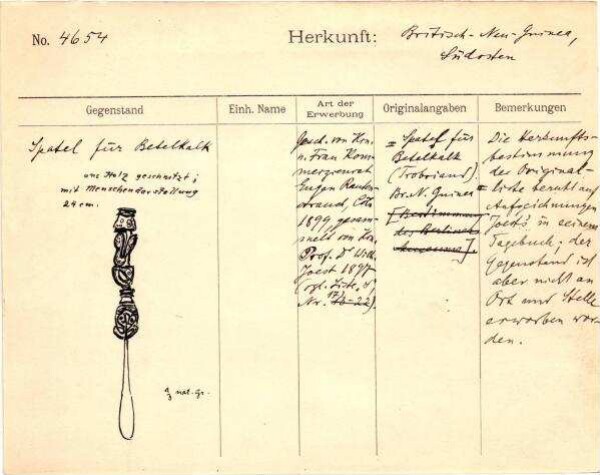 No. 4654
Herkunft: Britisch-Neu-Guinea,
Südosten
Gegenstand
Einh. Name
Art der
Erwerbung
Originalangaben
Bemerkungen
Spatel für Betelkalk
aus Holz geschnitzt;
mit Menschendarstellung
24 cm.
2/3 nat. Gr.
Gesch. von Hrn.
u. Frau Kom-
merzienrat
Eugen Rauten-
strauch, Cöln
1899, gesam-
melt von Hrn.
Prof. Dr Wilh.
Joest 1897
(vgl. Liste
Nr. 22).
= Spatel für
Betelkalk
(Trobriand).
Br. N. Guinea =
[Bestimmung
des Berliner
Museums].
Die Herkunfts-
bestimmung
der Original-
liste beruht auf
Aufzeichnungen
Joest's in seinem
Tagebuch; der
Gegenstand ist
aber nicht an
Ort und Stelle
erworben wor-
den.